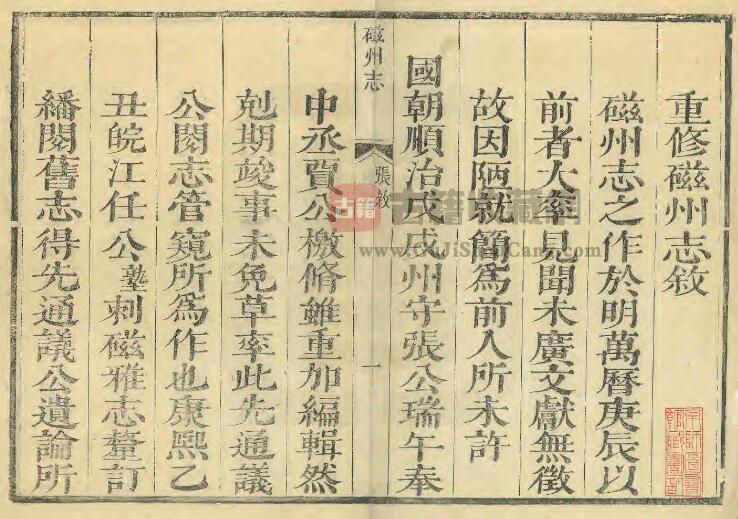 重修磁州志敘
磁州志之作於明萬曆庚辰以
前者大率見聞未廣文獻無徵
故因陋就簡為前人所未許
國朝順治戊戌州守張公瑞午奉
磁州志
張敘
一
中丞賈公檄脩雖重加編輯然
剋期竣事未免草率此先通議
公閱志管窺所為作也康熙乙
丑皖江任公塾刺磁雅志釐訂
繙閱舊志得先通議公遺論所
古籍
www.GuJiShuCang.com